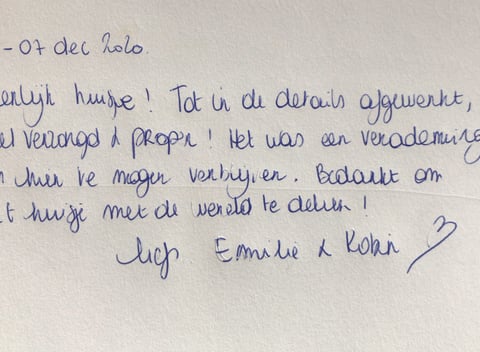 - 07 dec 2020.
enlijk huisje! Tot in de details afgewerkt,
el verzorgd & proper! Het was een verademing
hier te mogen verblijven. Bedankt om
t huisje met de wereld te delen!
liefs Emilie & Robin